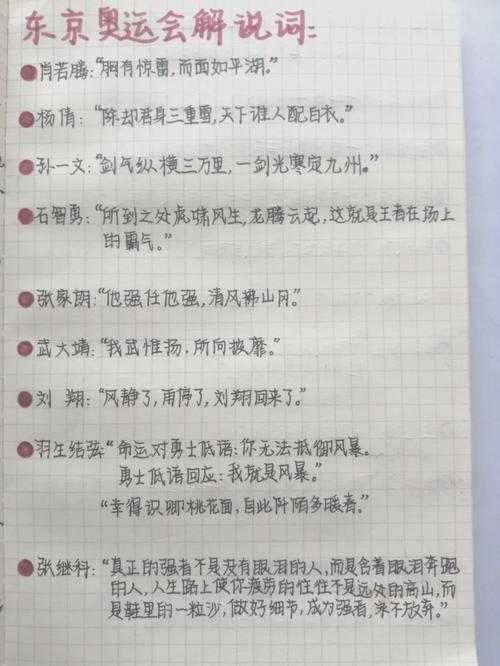 东京奥运会解说词:
肖若腾:“胸有惊雷,而面如平湖。”
杨倩:“除却君身三重雪,天下谁人配白衣。”
孙一文:“剑气纵横三万里,一剑光寒定九州。”
石智勇:“所到之处虎啸风生,龙腾云起,这就是王者在场上
的霸气。”
张家朗:“他强任他强,清风拂山冈。”
武大靖:“我武惟扬,所向披靡。”
刘翔:“风静了,雨停了,刘翔回来了。”
羽生结弦:“命运对勇士低语:你无法抵御风暴。
勇士低语回应:我就是风暴。”
“幸得识卿桃花面,自此阡陌多暖春。”
张继科:“真正的强者不是没有眼泪的人,而是含着眼泪奔跑
的人,人生路上使你疲劳的往往不是远处的高山,而
是鞋里的一粒沙,做好细节,成为强者,永不放弃。”